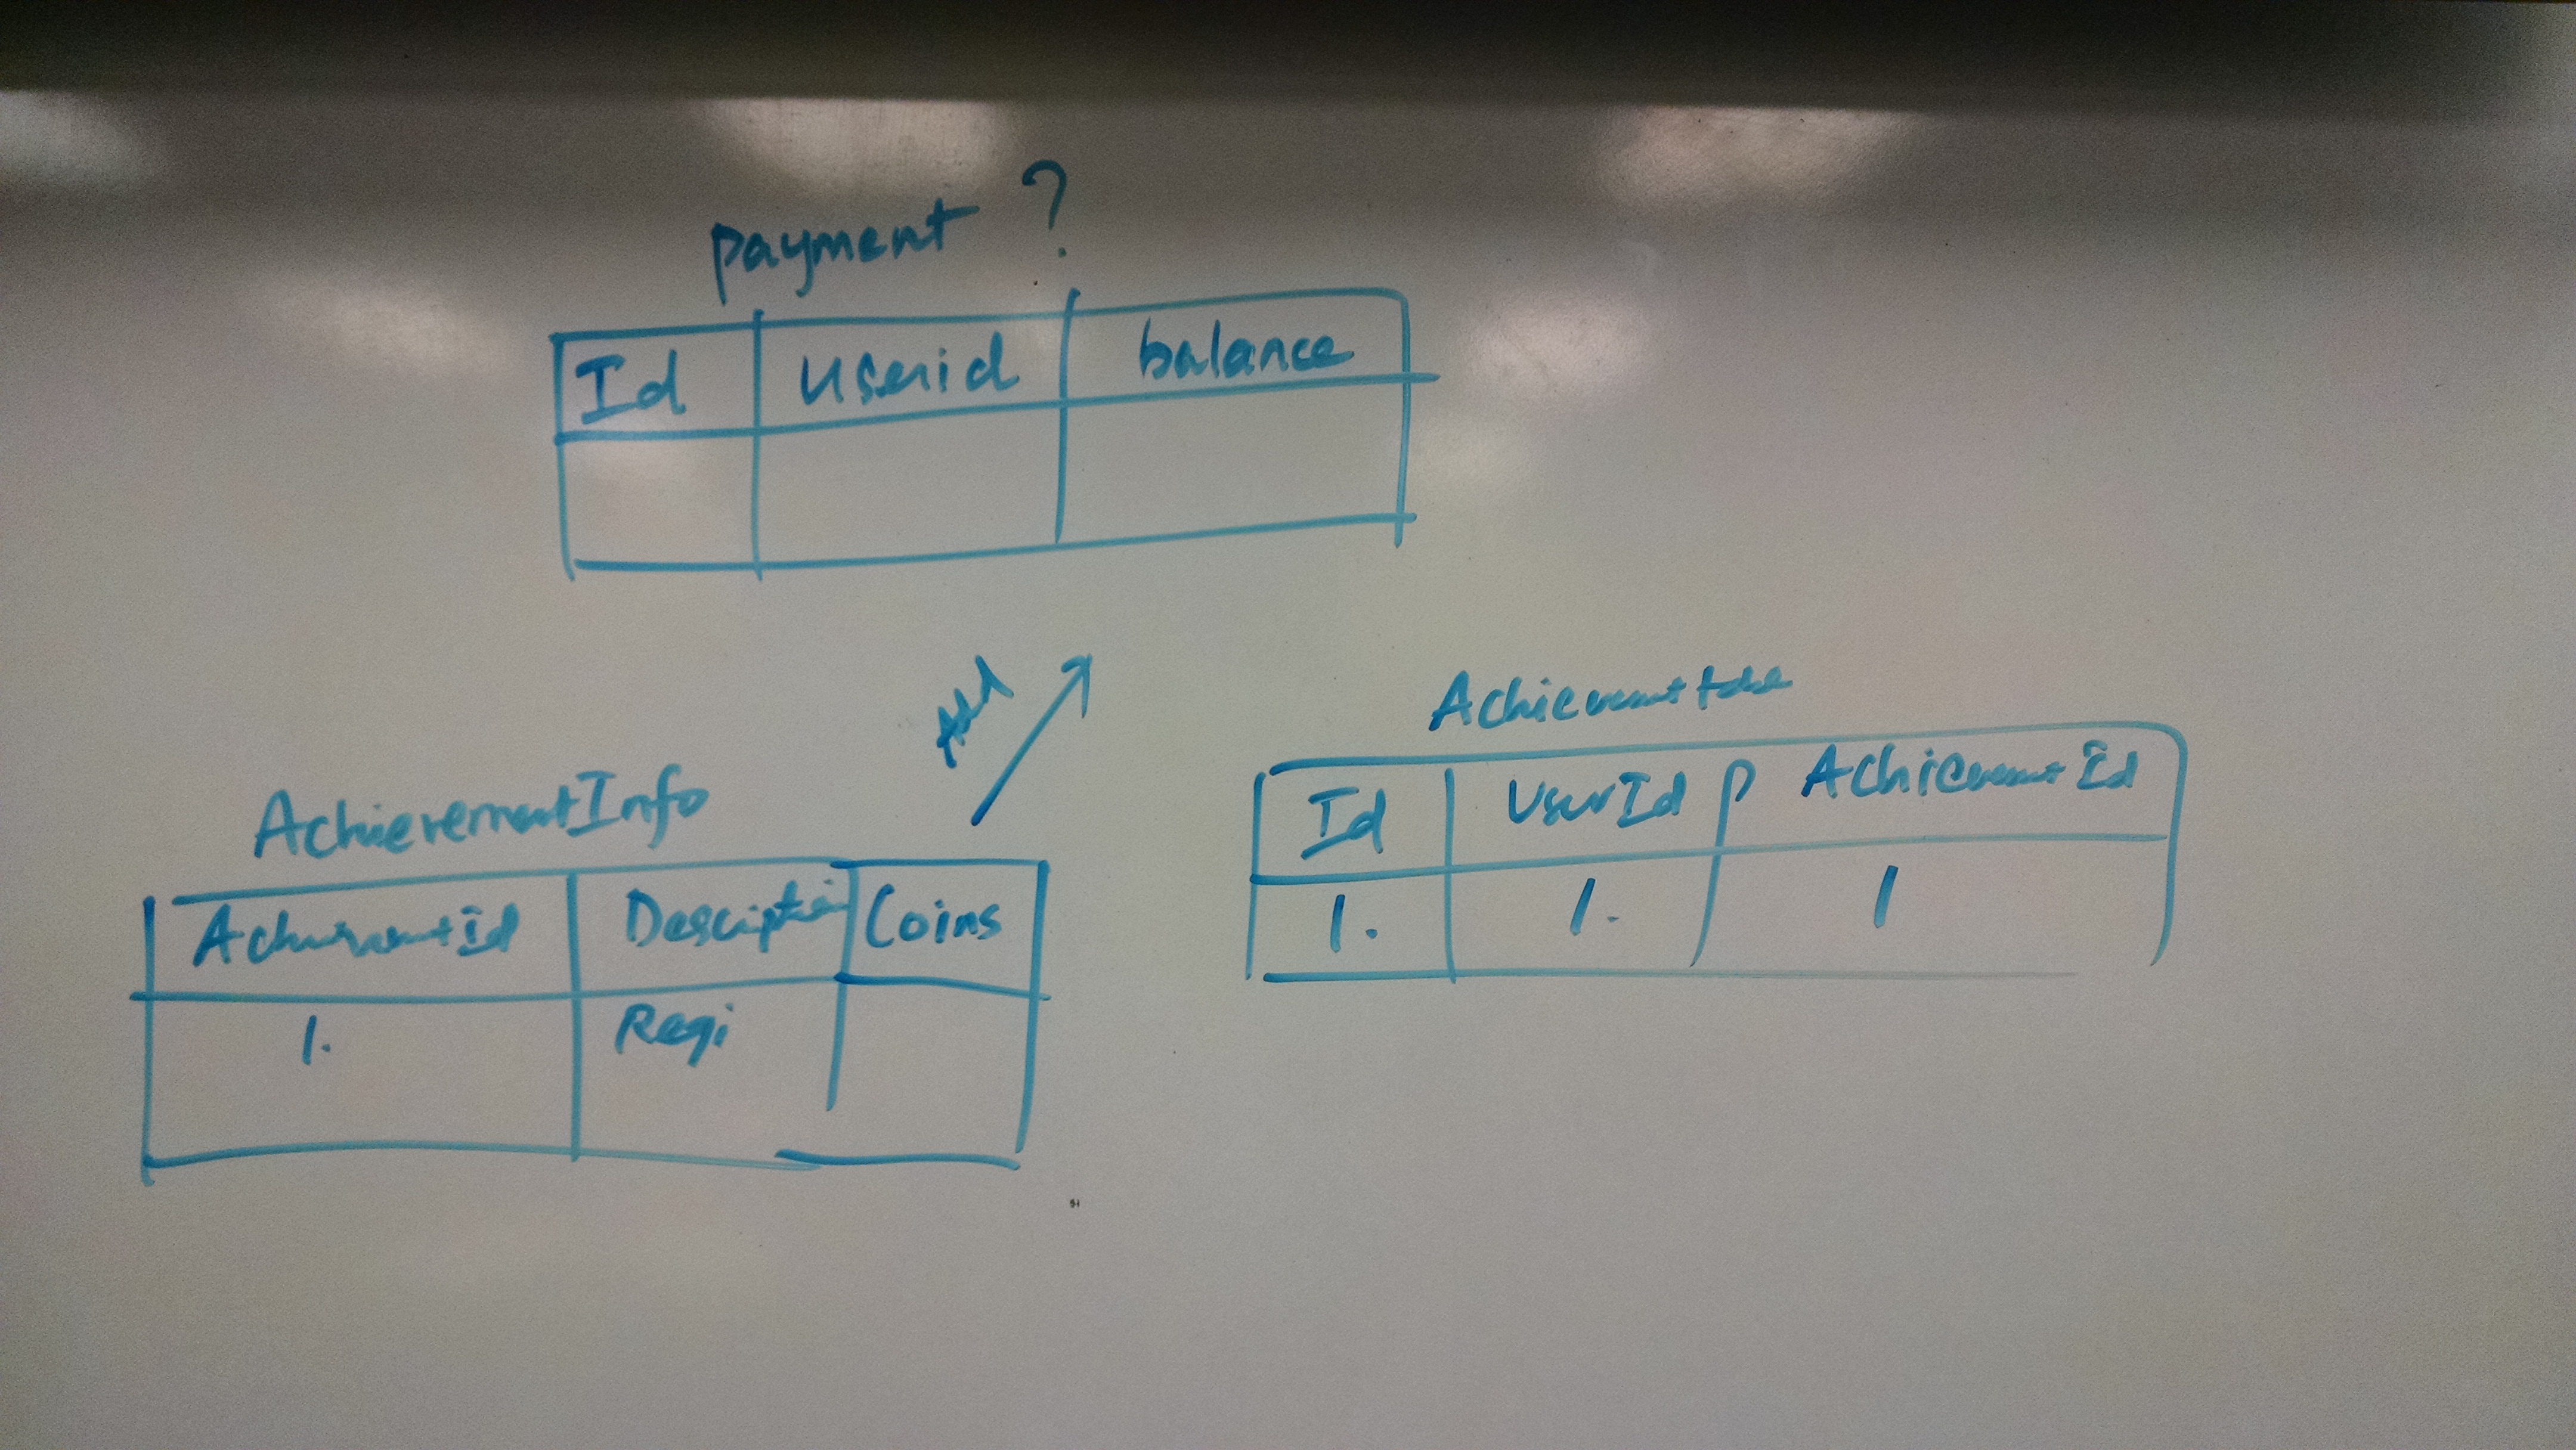 payment ?
Id userid balance
Add
AchievementInfo
AchievementId Description Coins
1. Regi
Achievement table
Id UserId AchievementId
1. 1. 1